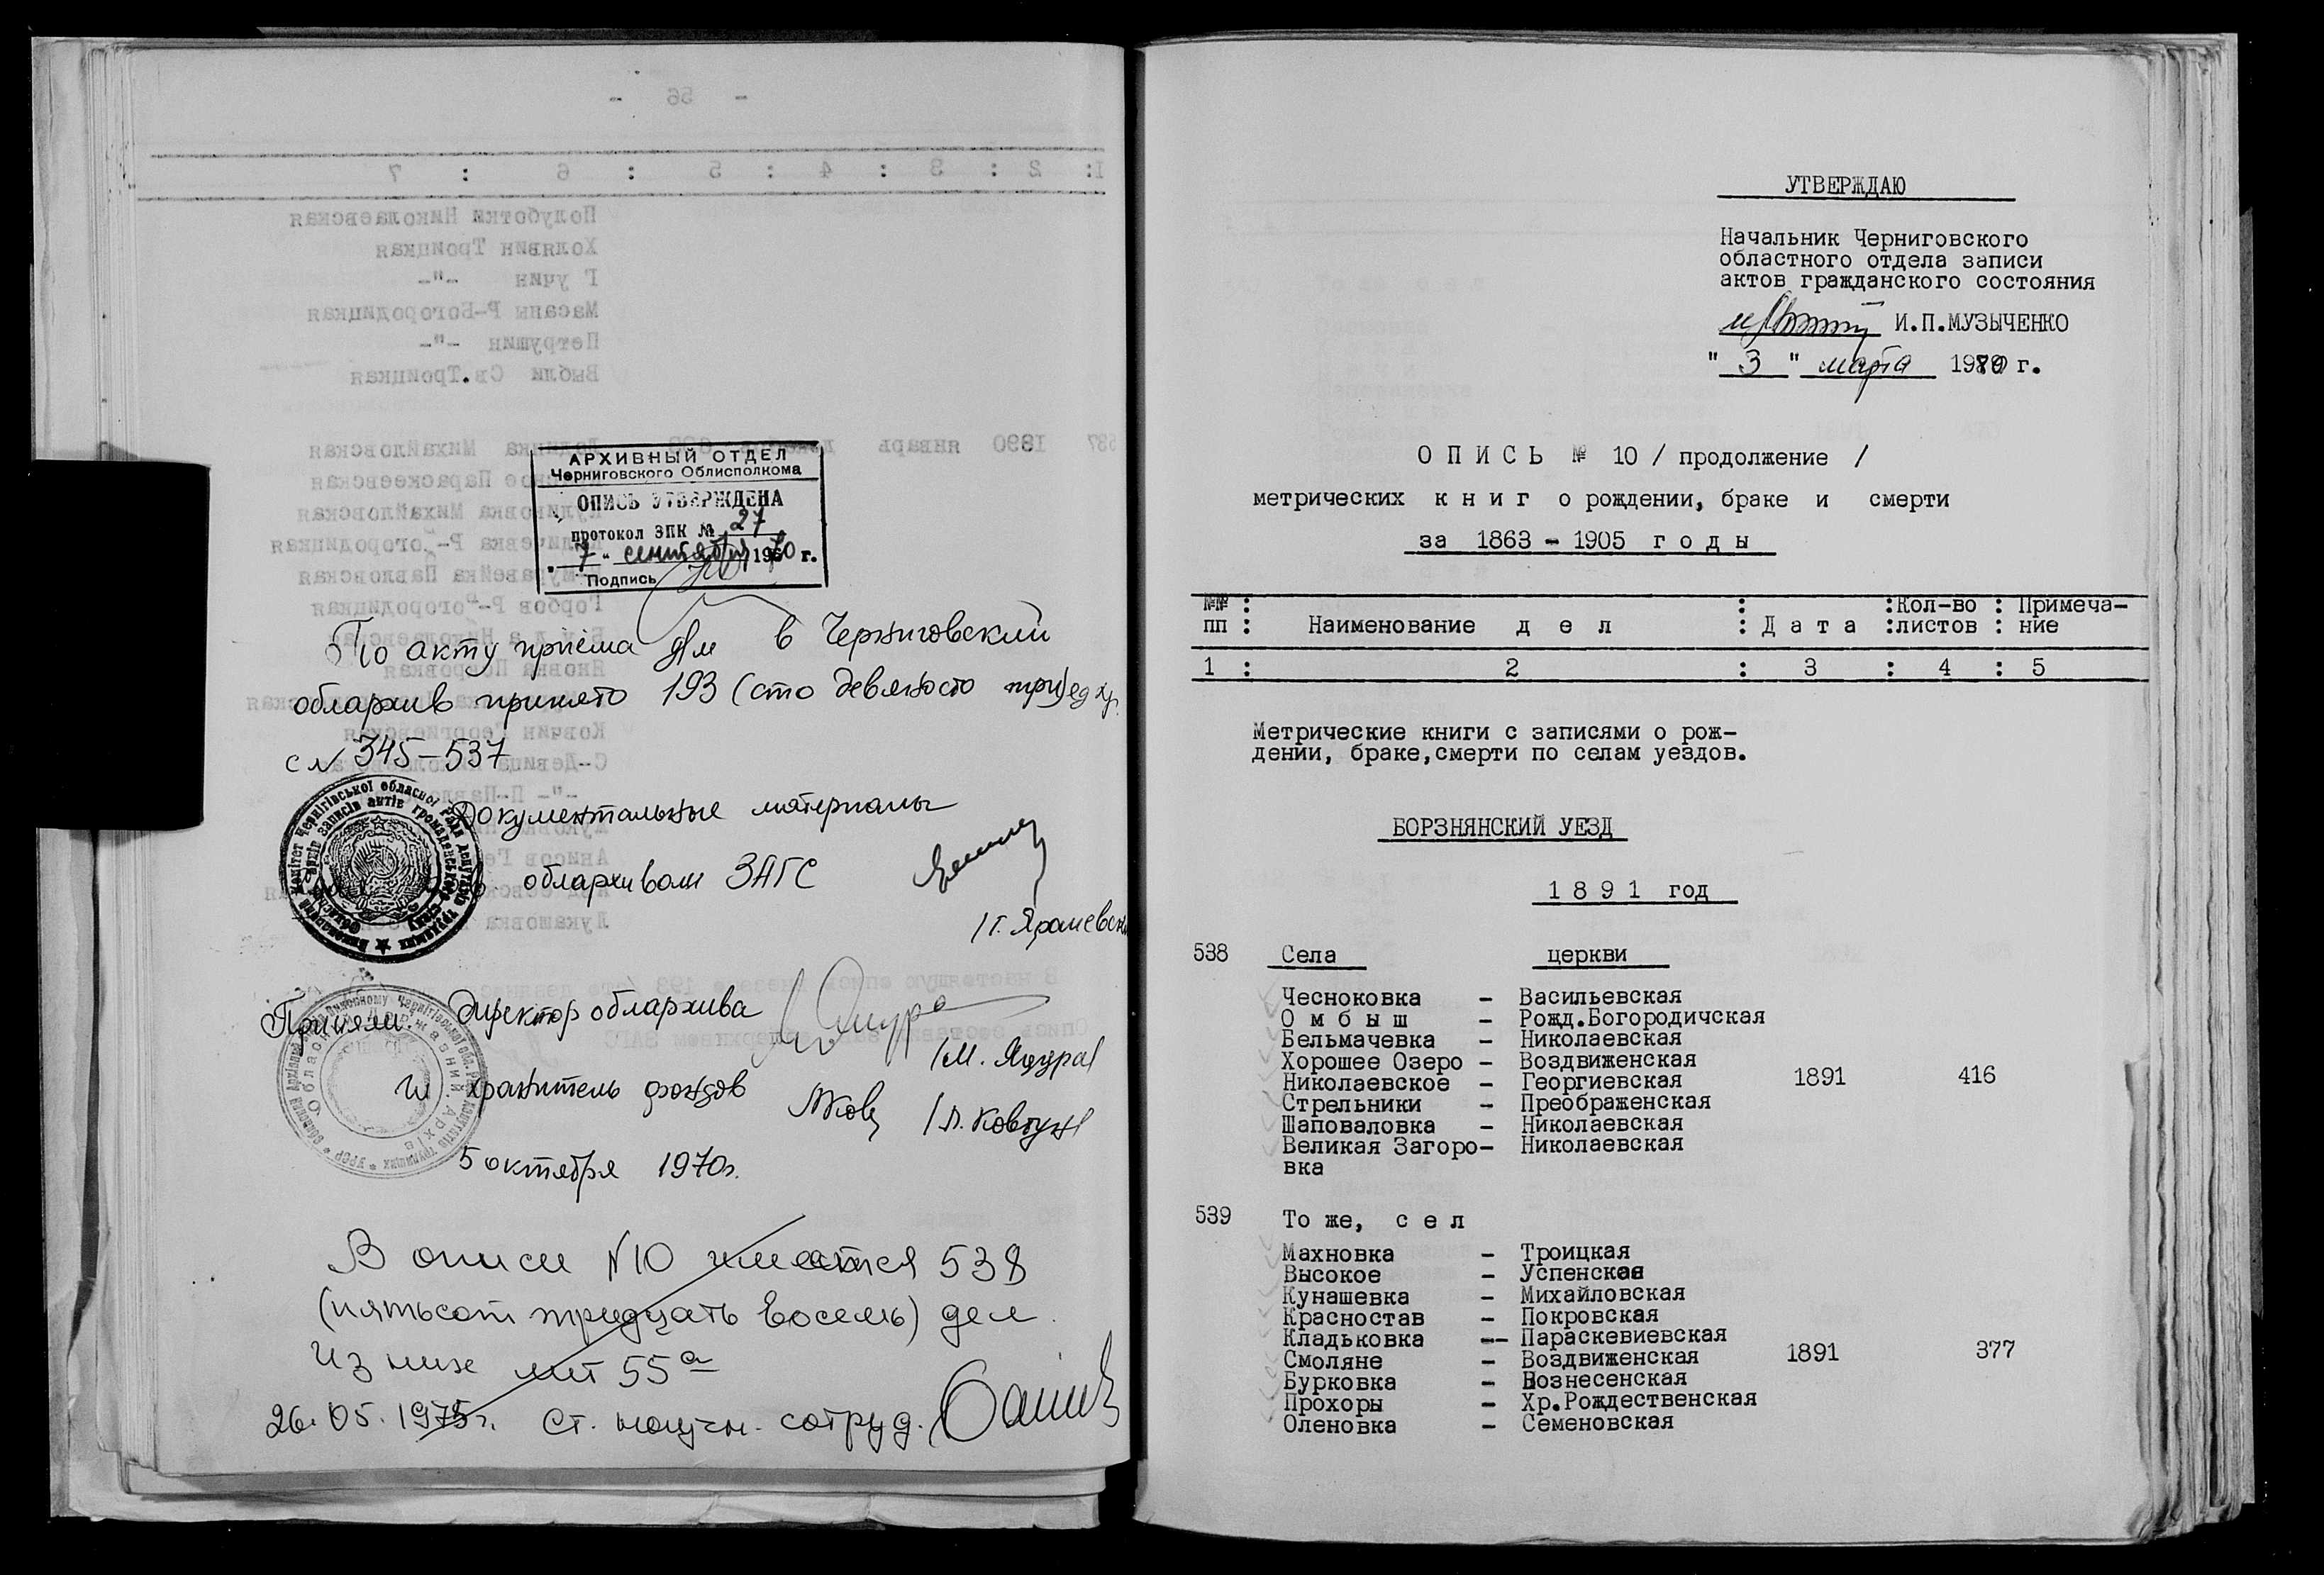 АРХИВНЫЙ ОТДЕЛ
Черниговского Облисполкома
ОПИСЬ УТВЕРЖДЕНА
протокол ЭПК № 27
"7" сентября 1970 г.
Подпись
По акту приёма в Черниговский
облархив принято 193 (сто девяносто три) ед хр.
с № 345-537
Документальные материалы
облархивом ЗАГС
Приняли: Директор облархива
/М. Яцура/
хранитель фондов
/Л. Ковтун/
5 октября 1970г.
В описи №10 имеется 538
(пятьсот тридцать восемь) дел.
Из них лит 55а
26.05.1975г. Ст. научн. сотруд.
УТВЕРЖДАЮ
Начальник Черниговского
областного отдела записи
актов гражданского состояния
И.П.МУЗЫЧЕНКО
" 3 " марта 1980 г.
О П И С Ь № 10 / продолжение /
метрических к н и г о рождении, браке и смерти
за 1863 - 1905 г о д ы
№№ : : :Кол-во : Примеча-
пп : Наименование д е л : Д а т а :листов : ние
1 : 2 : 3 : 4 : 5
Метрические книги с записями о рож-
дении, браке,смерти по селам уездов.
БОРЗНЯНСКИЙ УЕЗД
1 8 9 1 год
538 Села церкви
Чесноковка - Васильевская
О м б ы ш - Рожд.Богородичская
Бельмачевка - Николаевская
Хорошее Озеро - Воздвиженская
Николаевское - Георгиевская 1891 416
Стрельники - Преображенская
Шаповаловка - Николаевская
Великая Загоро- Николаевская
вка
539 То же, с е л
Махновка - Троицкая
Высокое - Успенская
Кунашевка - Михайловская
Красностав - Покровская
Кладьковка -- Параскевиевская
Смоляне - Воздвиженская 1891 377
Бурковка - Вознесенская
Прохоры - Хр.Рождественская
Оленовка - Семеновская